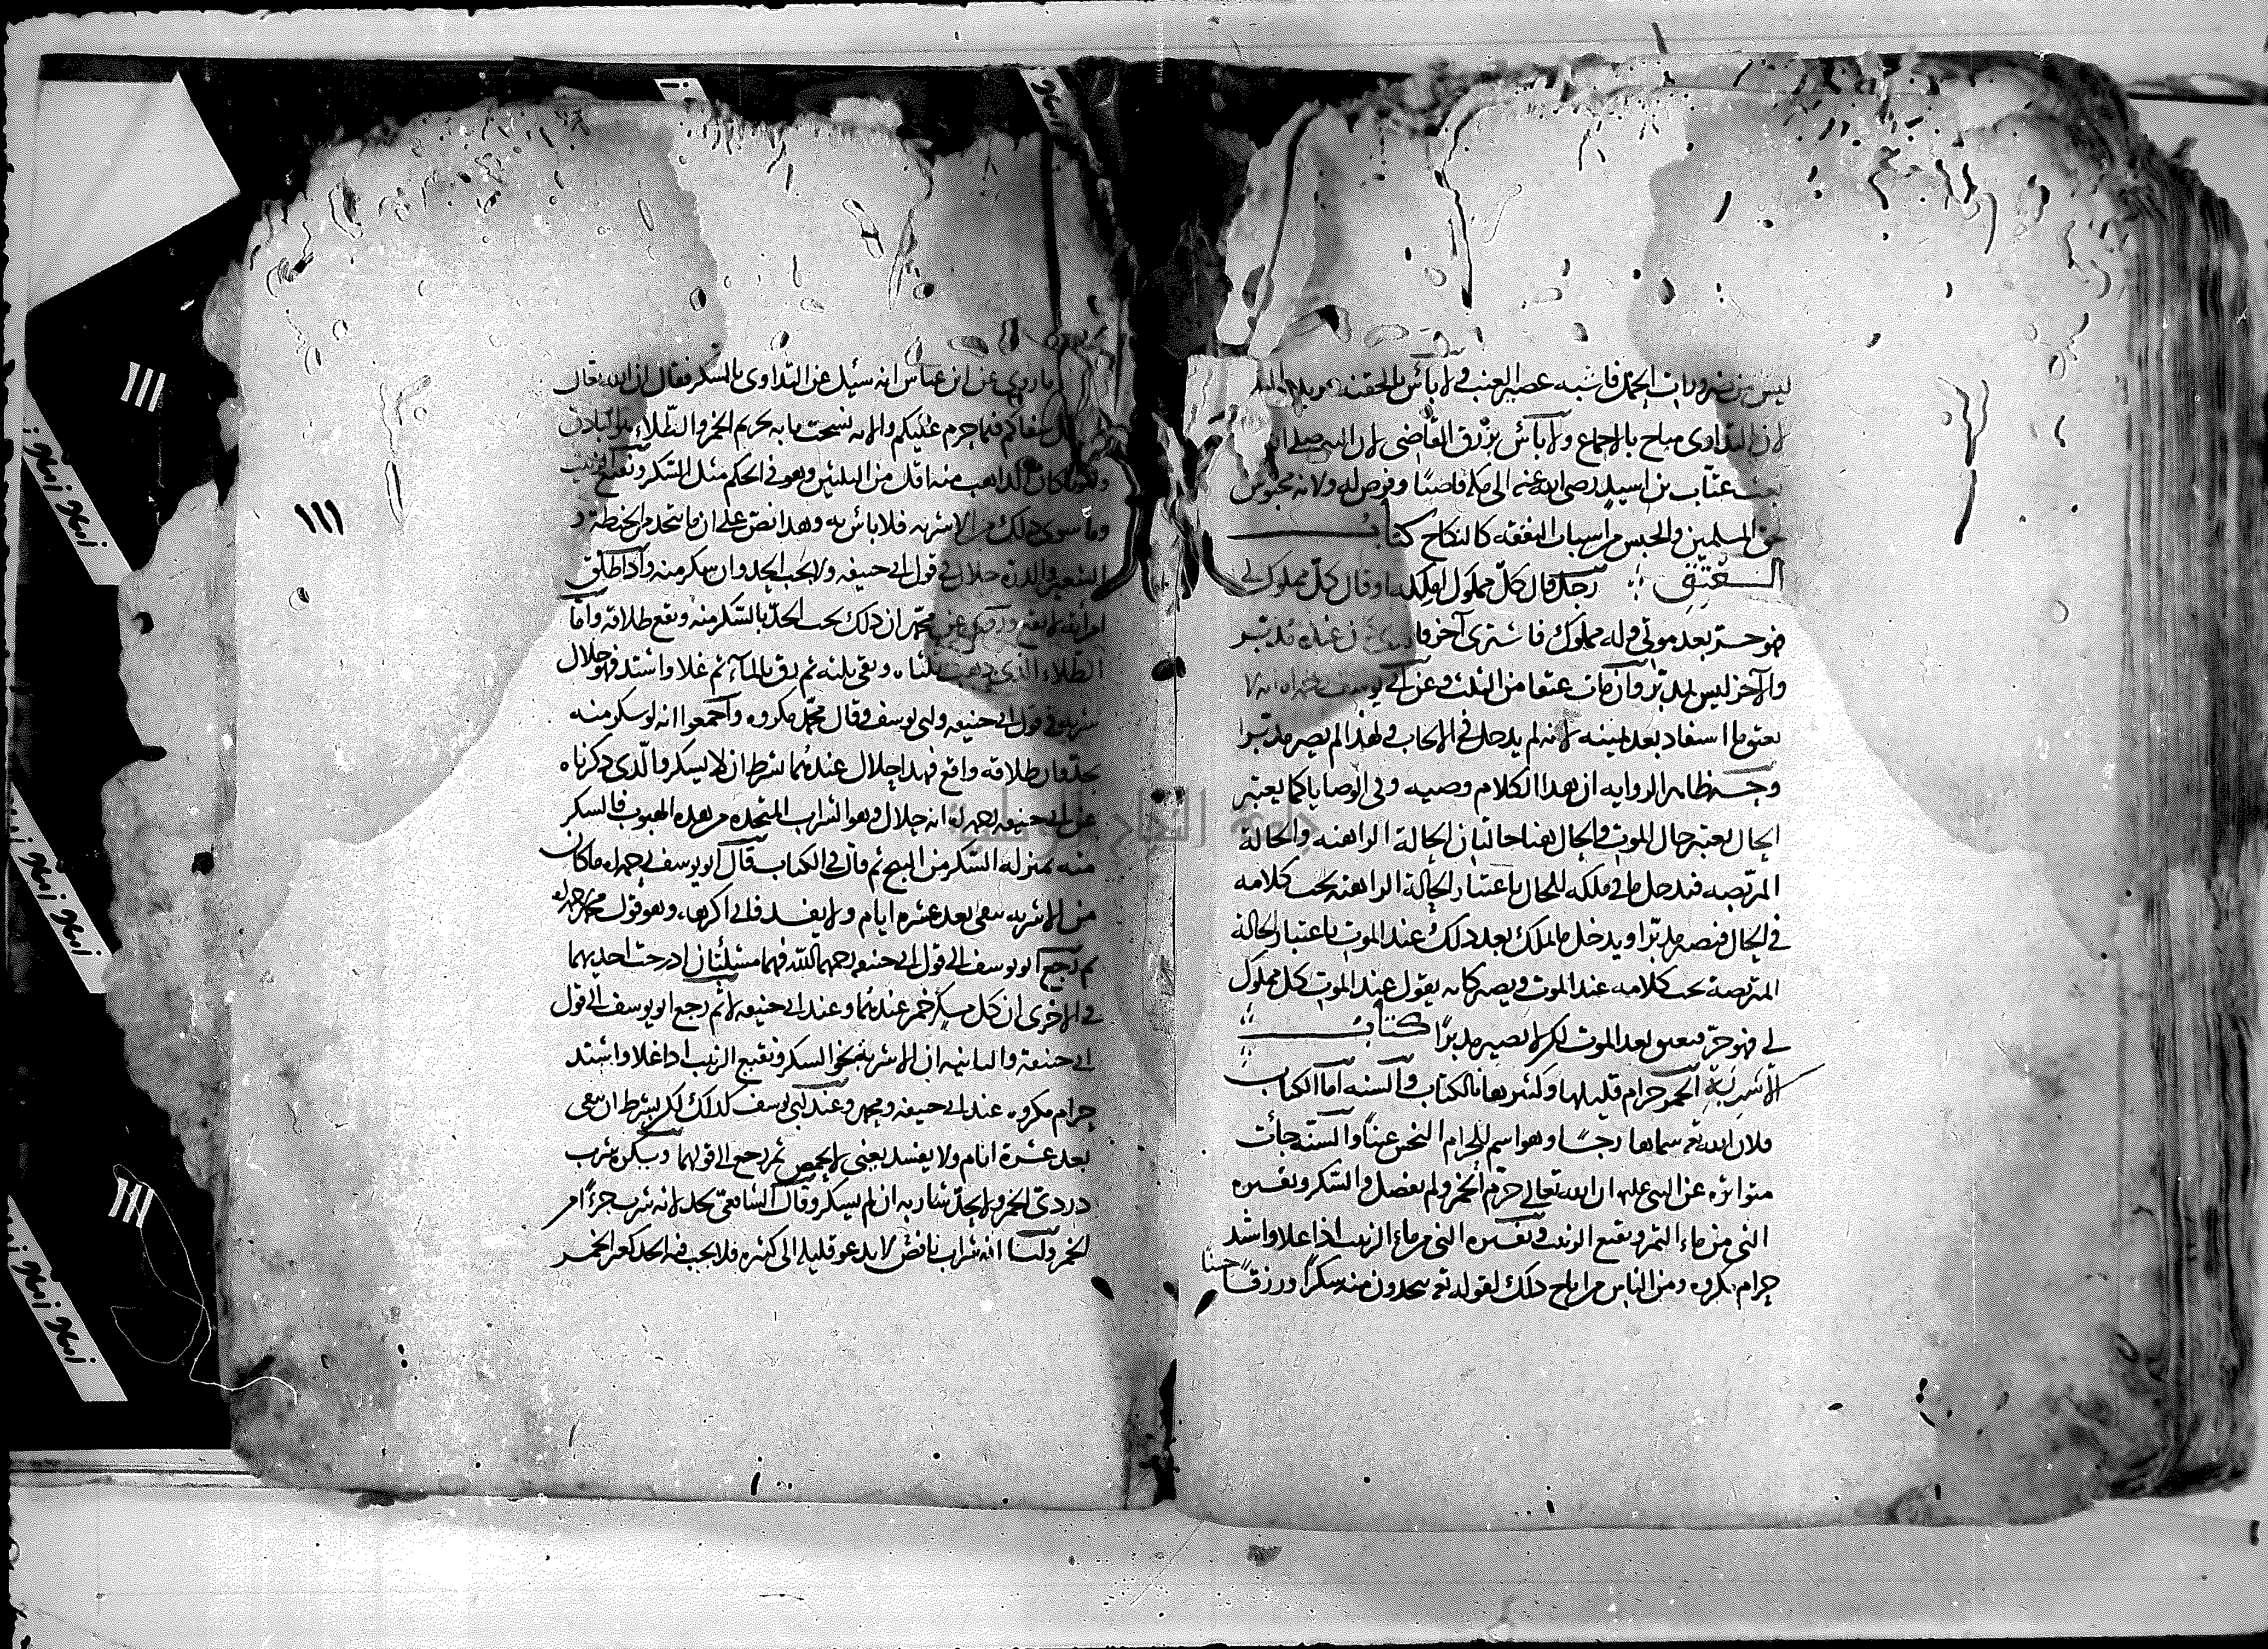 ليس من ضرورات الحمل فاشبه عصير العنب في لا بأس بالحقنة يريد به
لان التداوى مباح بالاجماع ولا بأس برزق القاضى لان النبى صلى الله
بعث عتاب بن اسيد رضى الله عنه الى مكة قاضيا وفرض له ولانه محبوس
حق المسلمين والحبس من اسباب النفقه كالنكاح كتاب
العتق رجل قال كل مملوك املكه او قال كل مملوك لى
فهو حر بعد موتى وله مملوك فاشترى آخر فالذى كان عنده مدبر
والآخر ليس بمدبر وان مات عتقا من الثلث وعن ابى يوسف
يعتق ما استفاد بعد يمينه لانه لم يدخل في الايجاب ولهذا لم يصر مدبرا
وجه ظاهر الروايه ان هذا الكلام وصيه وفى الوصايا كما يعتبر
الحال يعتبر حال الموت والحال هنا حالتان الحالة الراهنه والحالة
المتربصه فيدخل ما في ملكه للحال باعتبار الحالة الراهنه تحت كلامه
في الحال فيصير مدبرا ويدخل ما يملك بعد ذلك عند الموت باعتبار الحالة
المتربصة تحت كلامه عند الموت ويصير كانه يقول عند الموت كل مملوك
لى فهو حر فيعتق بعد الموت لكن لا يصير مدبرا كتاب
الاشربة الخمر حرام قليلها وكثيرها بالكتاب والسنه اما الكتاب
فلان الله تع سماها رجسا وهو اسم للحرام النجس عينا والسنة جاءت
متواتره عن النبى علم ان الله تعالى حرم الخمر ولم يفصل والسكر وتفسيره
النى من ماء التمر ونقيع الزبيب وتفسيره النى من ماء الزبيب اذا غلا واشتد
حرام مكروه ومن الناس من اباح ذلك لقوله تع تتخذون منه سكرا ورزقا حسنا
ما روى عن ابن عباس انه سئل عن التداوى بالسكر فقال ان الله تعالى
شفاكم فيما حرم عليكم والآيه نسخت بآيه تحريم الخمر والطلاء
وهو ما كان الذاهب منه اقل من الثلثين وهو في الحكم مثل السكر ونقيع الزبيب
وما سوى ذلك من الاشربه فلا باس به وهذا نص على ان ما يتخذ من الحنطة و
الشعير والذرة حلال في قول ابى حنيفه ولا يجب الحد وان سكر منه واذا طلق
امرأته لا يقع وروى عن محمد ان ذلك يجب الحد بالسكر منه ويقع طلاقه واما
الطلاء الذى ذهب ثلثاه وبقى ثلثه ثم رق بالماء ثم غلا واشتد فهو حلال
شربه في قول ابى حنيفه وابى يوسف وقال محمد مكروه واجمعوا انه لو سكر منه
يحد وان طلاقه واقع فهذا حلال عندهما شرط ان لا يسكر والذى ذكرناه
عن ابى حنيفه رحمه الله انه حلال وهو الشراب المتخذ من هذه الحبوب فالسكر
منه بمنزلة السكر من البنج ثم قال في الكتاب قال ابو يوسف رحمه الله ما كان
من الاشربه يبقى بعد عشره ايام ولا يفسد فانى اكرهه وهو قول محمد رحمه الله
ثم رجع ابو يوسف الى قول ابى حنيفه رحمهما الله فهما مسئلتان ادرجت احديهما
في الاخرى ان كل مسكر خمر عندهما وعند ابى حنيفه لا ثم رجع ابو يوسف الى قول
ابى حنيفة والثانيه ان الاشربه نحو السكر ونقيع الزبيب اذا غلا واشتد
حرام مكروه عند ابى حنيفه ومحمد وعند ابى يوسف كذلك لكن بشرط ان يبقى
بعد عشرة ايام ولا يفسد يعنى لا يحمض ثم رجع الى قولهما ويكره شرب
دردى الخمر ولا يحد شاربه ان لم يسكر وقال الشافعى يحد لانه شرب جزءا من
الخمر ولنا انه شراب ناقص لا يدعو قليله الى كثيره فلا يجب فيه الحد كغير الخمر